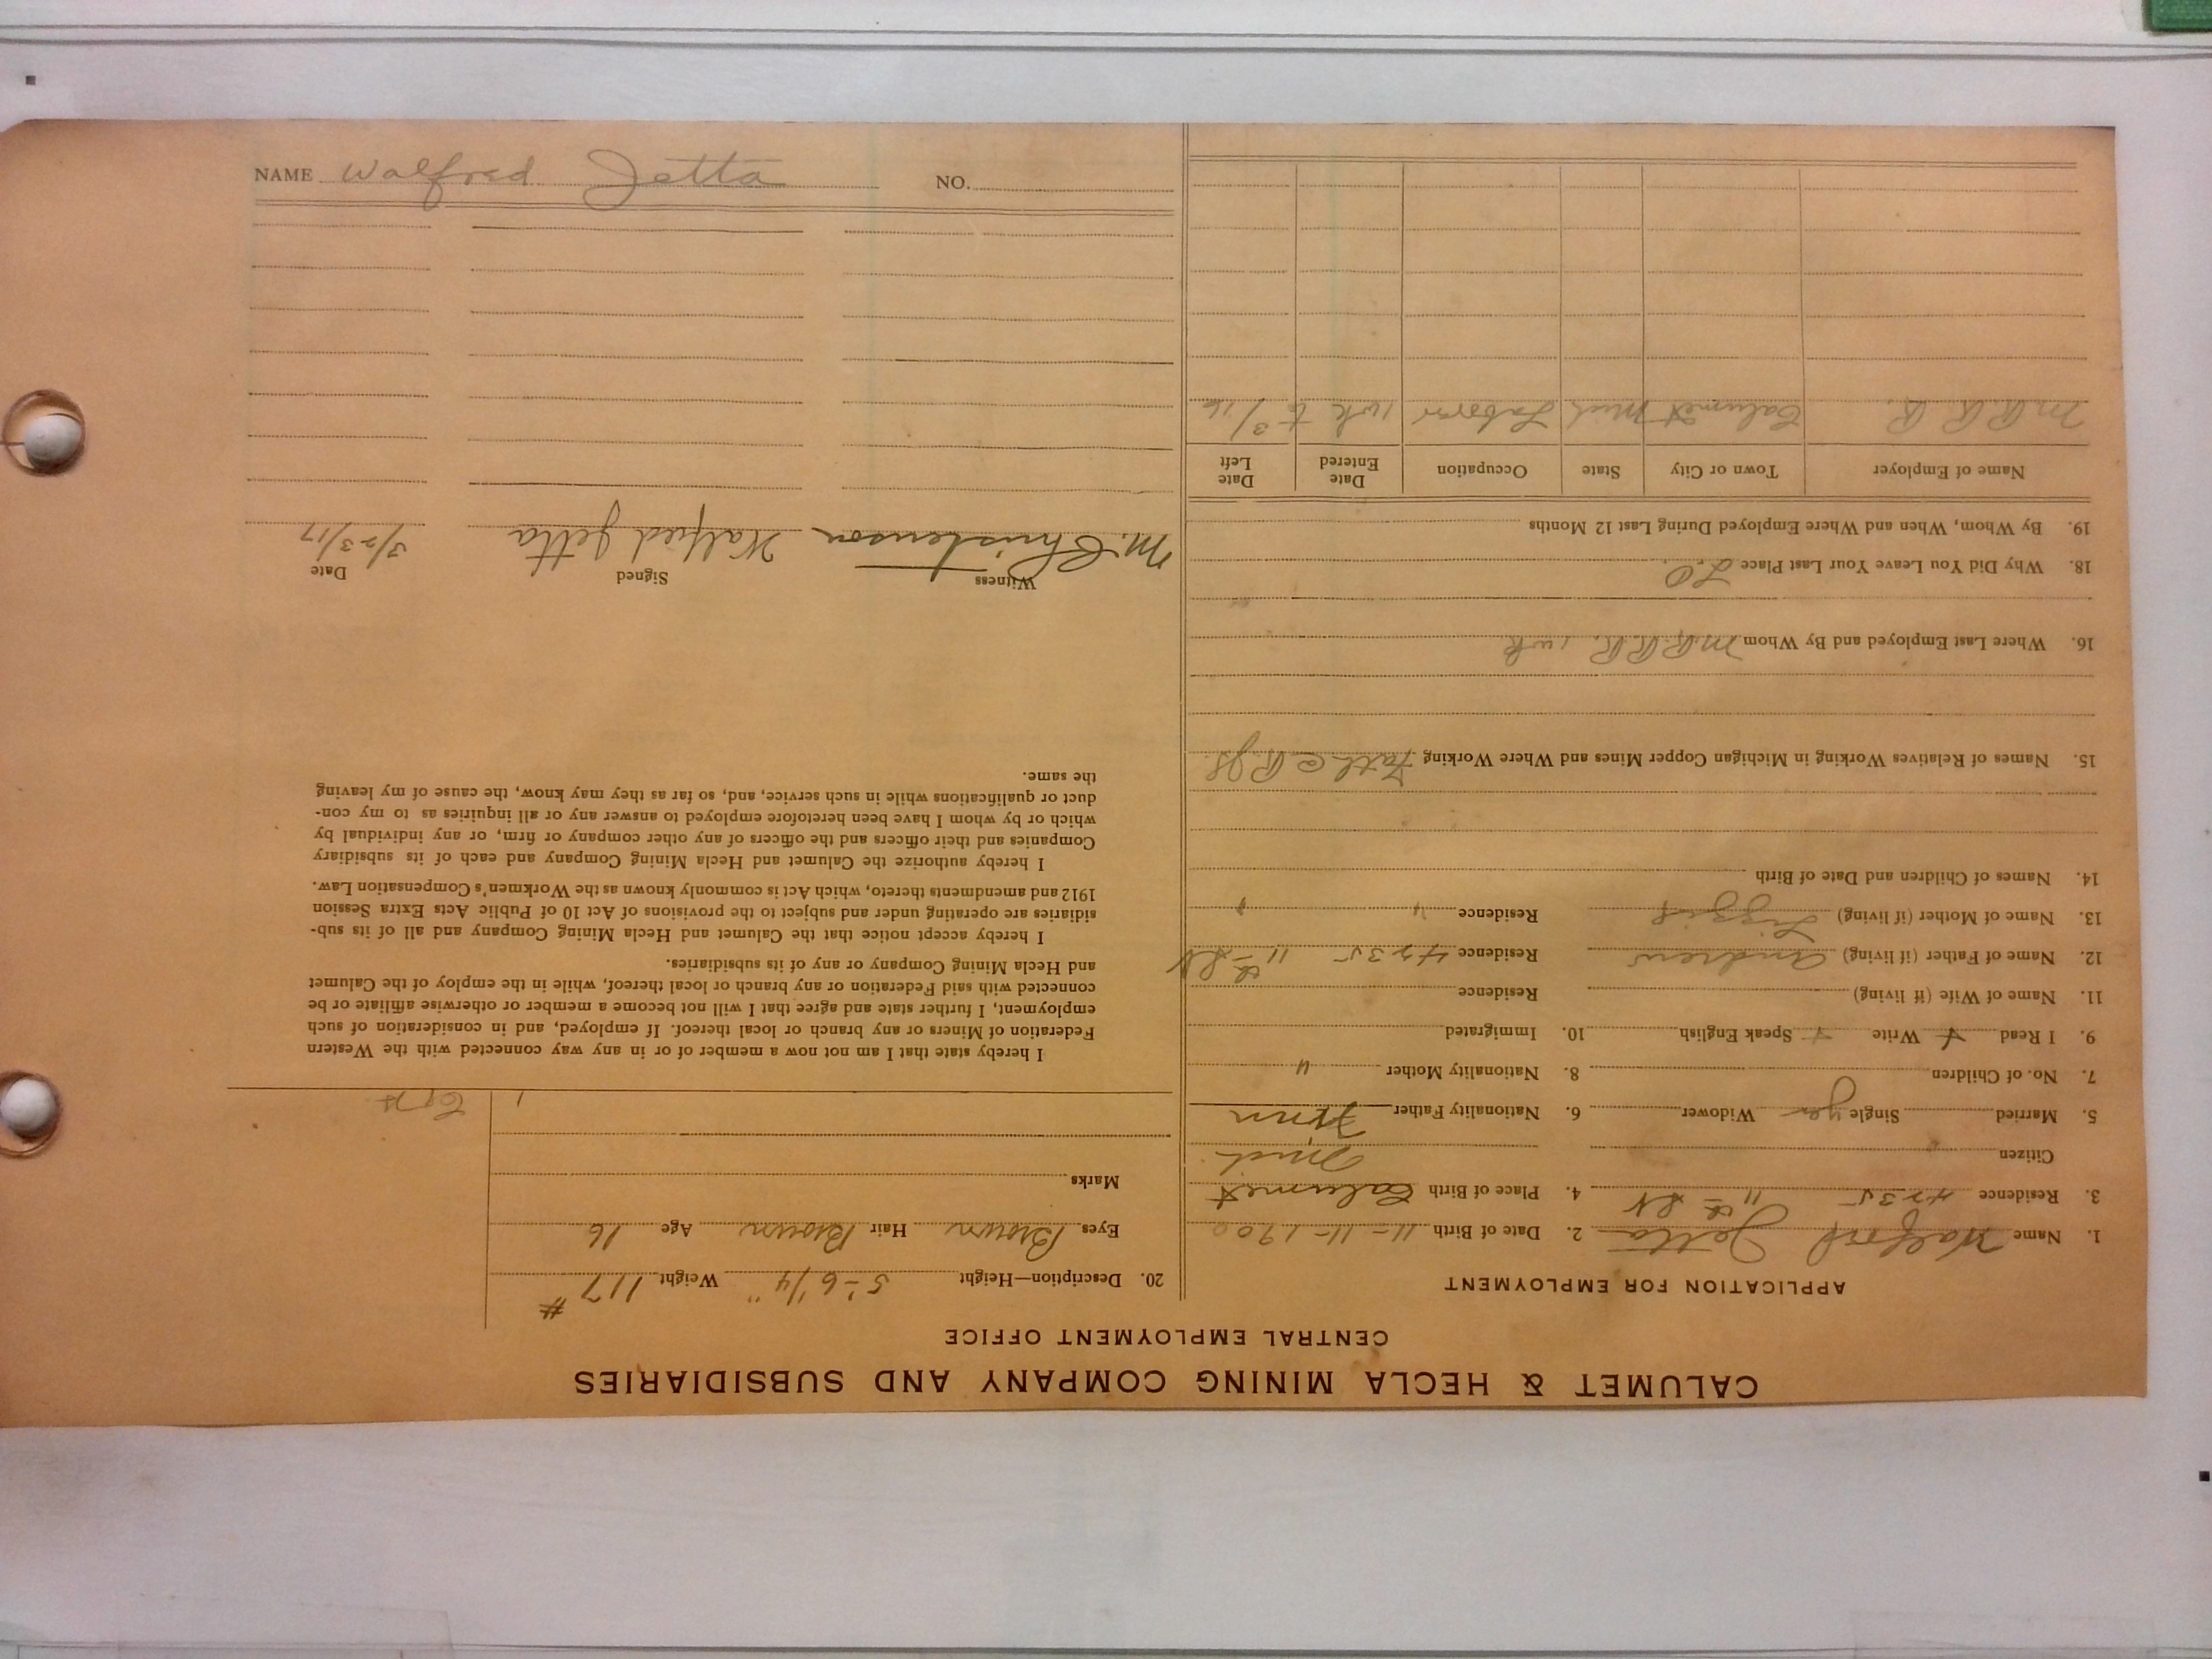 CALUMET & HECLA MINING COMPANY AND SUBSIDIARIES
CENTRAL EMPLOYMENT OFFICE
APPLICATION FOR EMPLOYMENT
1. Name Walfred Jetta 2. Date of Birth 11-11-1900
3. Residence 4235 11th St 4. Place of Birth Calumet
Citizen Mich
5. Married Single yes Widower 6. Nationality Father Finn
7. No. of Children 8. Nationality Mother "
9. I Read + Write + Speak English 10. Immigrated
11. Name of Wife (if living) Residence
12. Name of Father (if living) Andrew Residence 4235 11th St
13. Name of Mother (if living) Lizzie Residence " "
14. Names of Children and Date of Birth
15. Names of Relatives Working in Michigan Copper Mines and Where Working Fath
16. Where Last Employed and By Whom M.R.R.R. 1 wk
18. Why Did You Leave Your Last Place L.O.
19. By Whom, When and Where Employed During Last 12 Months
Name of Employer Town or City State Occupation Date Entered Date Left
M.R.R.R. Calumet Mich Laborer 1 wk to 3/16
20. Description—Height 5'-6 1/4" Weight 117 #
Eyes Brown Hair Brown Age 16
Marks
I hereby state that I am not now a member of or in any way connected with the Western
Federation of Miners or any branch or local thereof. If employed, and in consideration of such
employment, I further state and agree that I will not become a member or otherwise affiliate or be
connected with said Federation or any branch or local thereof, while in the employ of the Calumet
and Hecla Mining Company or any of its subsidiaries.
I hereby accept notice that the Calumet and Hecla Mining Company and all of its sub-
sidiaries are operating under and subject to the provisions of Act 10 of Public Acts Extra Session
1912 and amendments thereto, which Act is commonly known as the Workmen's Compensation Law.
I hereby authorize the Calumet and Hecla Mining Company and each of its subsidiary
Companies and their officers and the officers of any other company or firm, or any individual by
which or by whom I have been heretofore employed to answer any or all inquiries as to my con-
duct or qualifications while in such service, and, so far as they may know, the cause of my leaving
the same.
Witness Signed Date
M. Christenson Walfred Jetta 3/23/17
NAME Walfred Jetta NO.